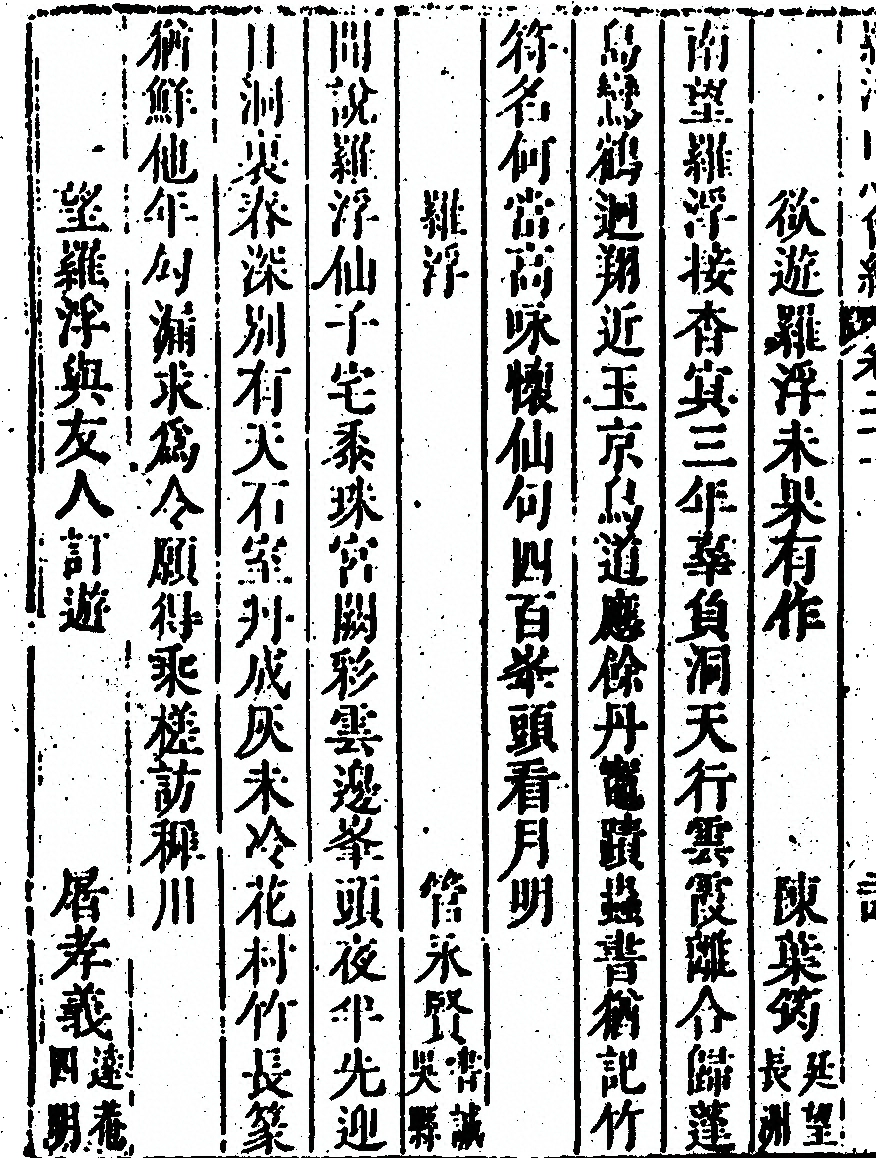 欲遊羅浮未果有作 陳葉筠 廷望 長洲
南望羅浮接杳冥三年辜負洞天行雲霞離合歸蓬
島鸞鶴迴翔近玉京鳥道應餘丹竈蹟蟲書猶記竹
符名何當高咏懷仙句四百峯頭看月明
羅浮 管永賢 誠 吳縣
聞說羅浮仙子宅黍珠宮闕彩雲邊峯頭夜半先迎
日洞裏春深別有天石室丹成灰未冷花村竹長篆
猶鮮他年勾漏求為令願得乘槎訪稚川
望羅浮與友人訂遊 屠孝義 遠菴 四明